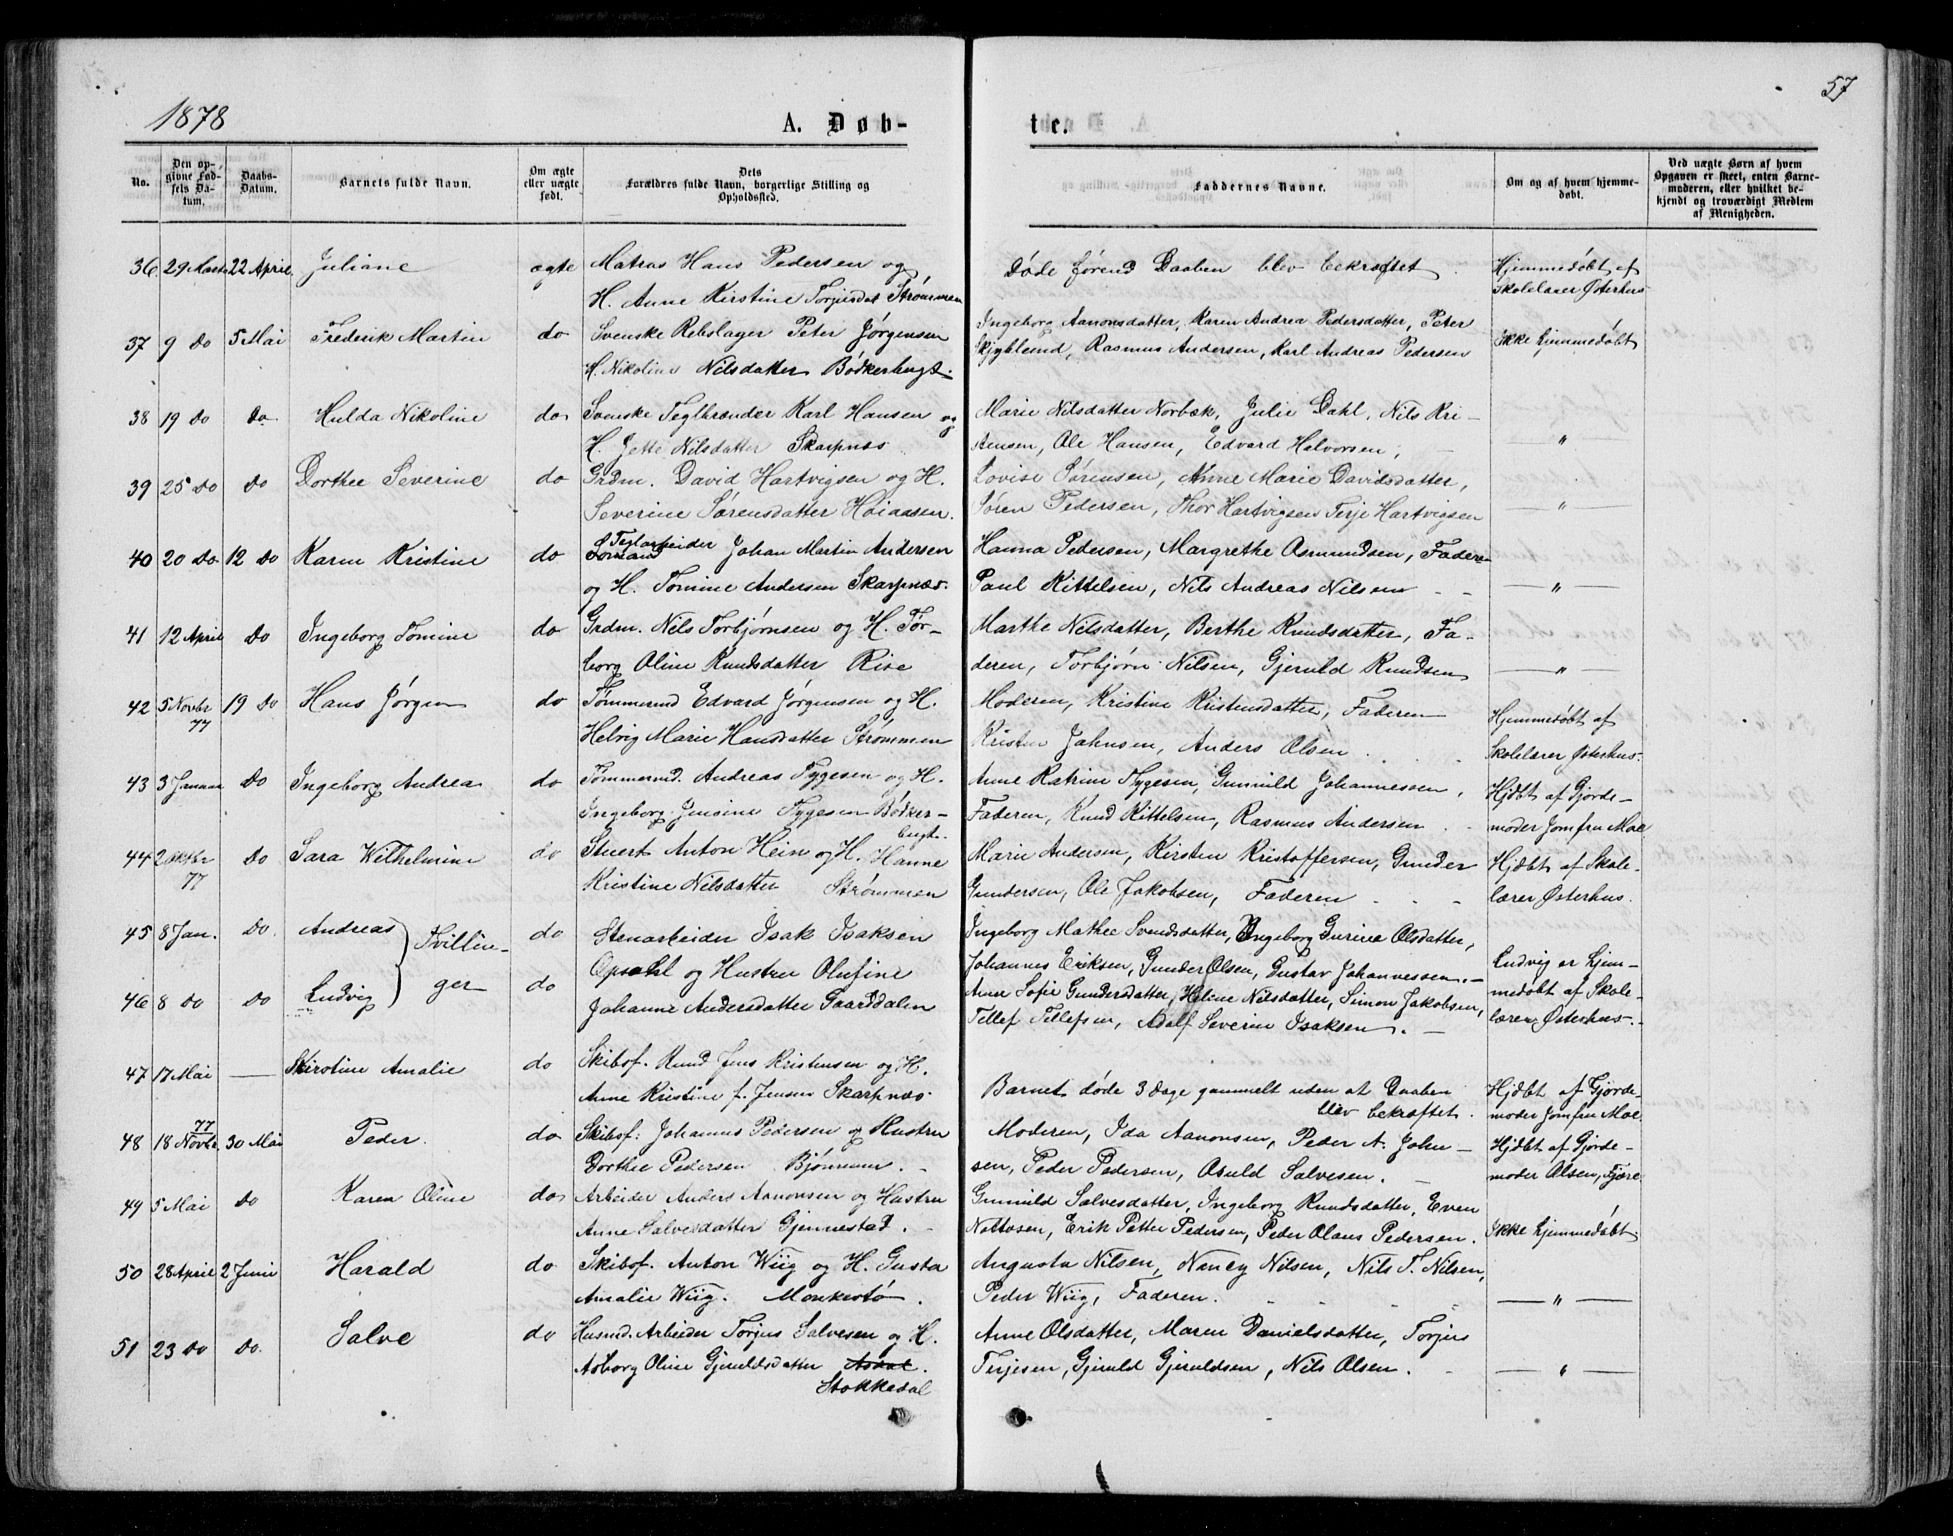 1878
A. Døb-
te.
57
No.
Den op-
givne Fød-
sels Da-
tum.
Daabs-
Datum.
Barnets fulde Navn.
Om ægte
eller uægte
født.
Dets
Forældres fulde Navn, borgerlige Stilling og
Opholdssted.
Faddernes Navne.
Om og af hvem hjemme-
døbt.
Ved uægte Børn af hvem
Opgaven er skeet, enten Barne-
moderen, eller hvilket be-
kjendt og troværdigt Medlem
af Menigheden.
36 29 Marts 22 April Juliane ægte Matros Hans Pedersen og
H. Anne Kirstine Torjusdat Strømmen
Døde førend Daaben blev bekræftet.
Hjemmedøbt af
Skolelærer Østerhus
37 9 do 5 Mai Frederik Martin do Svenske Rebslager Peter Jørgensen
H. Nikoline Nilsdatter Bødkerhugt.
Ingeborg Aanonsdatter, Karen Andrea Pedersdatter, Peter
Skjyblend, Rasmus Andersen, Karl Andreas Pedersen
Ikke hjemmedøbt
38 19 do do Hulda Nikoline do Svenske Teglbrænder Karl Hansen og
H. Jette Nilsdatter Skarpnæs
Marie Nilsdatter Norbæk, Julie Dahl, Nils Kri-
stensen, Ole Hansen, Edvard Halvorsen,
— " —
39 25 do do Dorthee Severine do Grdm. David Hartvigsen og H.
Severine Sørensdatter Høiaasen.
Lovise Sørensen, Anne Marie Davidsdatter,
Søren Pedersen, Thor Hartvigsen Terje Hartvigsen
— " —
40 20 do 12 do Karen Kristine do Sømand Teglarbeider Johan Martin Andersen
og H. Tomine Andersen Skarpnæs.
Hanna Pedersen, Margrethe Asmundsen, Faderen
Paul Kittelsen, Nils Andreas Nilsen
— " —
41 12 April do Ingeborg Tomine do Grdm. Nils Torbjørnsen og H. Tor-
borg Oline Knudsdatter Rise
Marthe Nilsdatter, Berthe Knudsdatter, Fa-
deren, Torbjørn Nilsen, Gjeruld Knudsen
— " —
42 5 Novbr 77 19 do Hans Jørgen do Tømmermd Edvard Jørgensen og H.
Helvig Marie Hansdatter Strømmen
Moderen, Kristine Kristensdatter, Faderen
Kristen Jahnsen, Anders Olsen
Hjemmedøbt af
Skolelærer Østerhus.
43 3 Januar do Ingeborg Andrea do Tømmermd. Andreas Tygesen og H.
Ingeborg Jensine Tygesen Bødker-
hugt.
Anne Katrine Tygesen, Gunnild Johannessen,
Faderen, Knud Kittelsen, Rasmus Andersen
Hjdbt af Gjorde-
moder Jomfru Moe
44 2 Oktbr 77 do Sara Wilhelmine do Stuert Anton Hein og H. Hanne
Kristine Nilsdatter Strømmen
Marie Andersen, Kirsten Kristoffersen, Gunder
Gundersen, Ole Jakobsen, Faderen
Hjdbt af Skole-
lærer Østerhus.
45 8 Jan. do. Andreas } Tvillin- do Stenarbeider Isak Isaksen
46 8 do do Ludvig } ger do Opsahl og Hustru Olufine
Johanne Andersdatter Gaarddalen
Ingeborg Mathee Svendsdatter, Ingeborg Gurine Olsdatter,
Johannes Eriksen, Gunder Olsen, Gustav Johannessen.
Anne Sofie Gundersdatter, Heline Nilsdatter, Simon Jakobsen,
Tellef Tellefsen, Adolf Severin Isaksen.
Ludvig er hjem-
medøbt af Skole-
lærer Østerhus.
47 17 Mai — Kirstine Amalie do Skibsf. Knud Jens Kristensen og H.
Anne Kristine f. Jensen Skarpnæs.
Barnet døde 3 dage gammelt uden at Daaben
blev bekræftet.
Hjdbt af Gjorde-
moder Jomfru Moe
48 18 Novbr. 77 30 Mai Peder. do Skibsf: Johannes Pedersen og Hustru
Dorthee Pedersen Bjønnum.
Moderen, Ida Aanonsen, Peder A. John-
sen, Peder Pedersen, Osuld Salvesen.
Hjdbt af Gjorde-
moder Olsen, Fjære
49 5 Mai do Karen Oline do Arbeider Anders Aanonsen og Hustru
Anne Salvesdatter Gjennestad.
Gunnild Salvesdatter, Ingeborg Knudsdatter, Even
Nottosen, Erik Petter Pedersen, Peder Olaus Pedersen.
Ikke hjemmedøbt
50 28 April 2 Juni Harald do Skibsf. Anton Wiig og H. Gusta
Amalie Wiig. Monkestø.
Augusta Nilsen, Nancy Nilsen, Nils T. Nilsen,
Peder Wiig, Faderen.
— " —
51 23 do do. Salve do Husmd. Arbeider Torjus Salvesen og H.
Asborg Oline Gjeruldsdatter Asdal.
Stokkedal
Anne Olsdatter, Maren Danielsdatter, Torjus
Terjesen, Gjeruld Gjeruldsen, Nils Olsen.
— " —